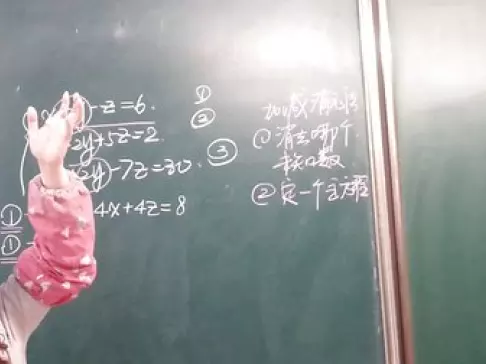 -z=6. ①
2y+5z=2. ②
2y-7z=30. ③
① 4x+4z=8
①
加减消元法
①消去哪个
未知数
②定一个主方程